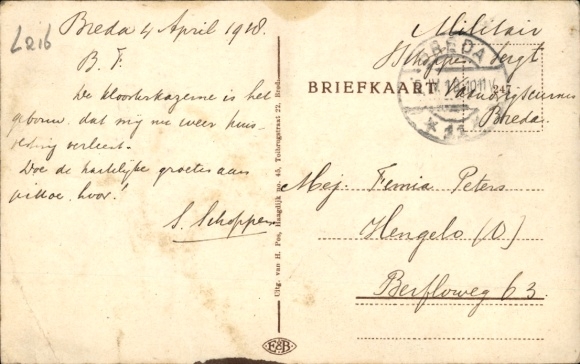 L216
Breda 4 April 1918
B. F.
De kloosterkazerne is het
gebouw dat mij nu weer huis-
vesting verleent.
Doe de hartelijke groeten aan
hoor!
S. Schoppen
Uitg. van H. Pos, Haagdijk no. 45, Tolbrugstraat 22, Breda.
Militair
S Schoppen Sergt
BREDA
BRIEFKAART
247
Breda.
Mej. Femia Peters
Hengelo (O)
Berfloweg 63.
F&B